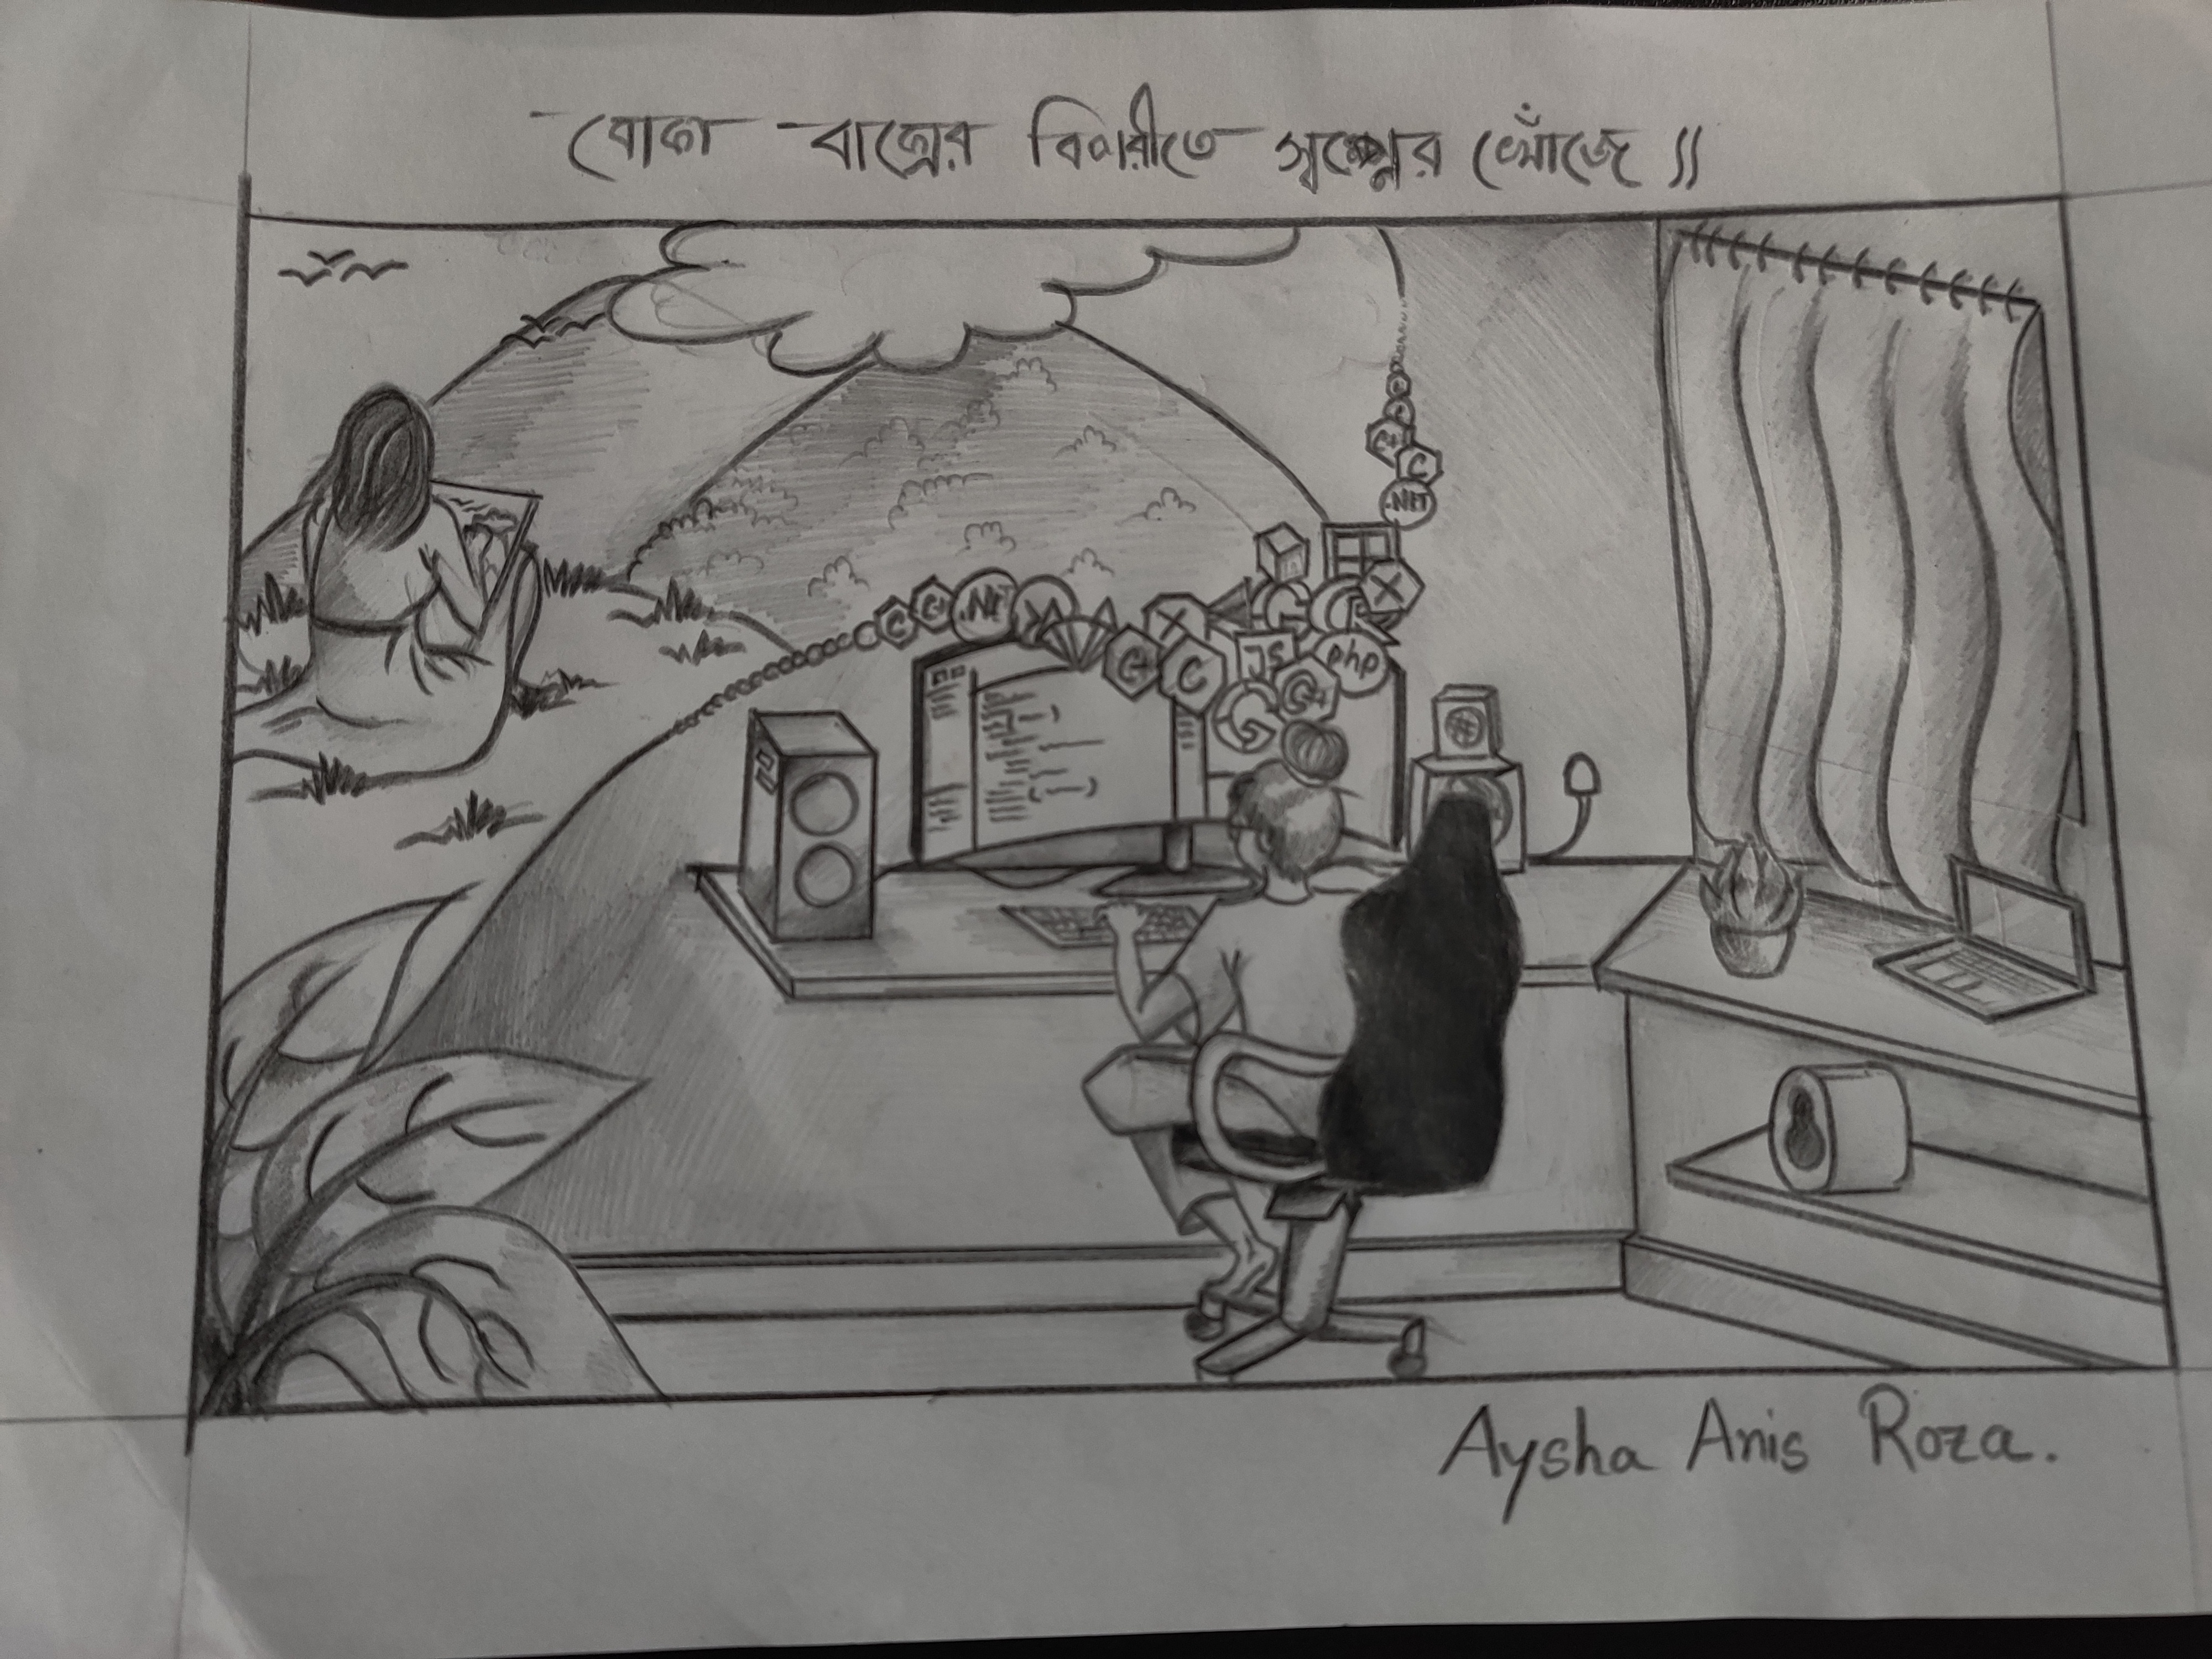 বোকা বাক্সের বিপরীতে স্বপ্নের খোঁজে ॥
.NET
C
.NET
X
X
C
JS
php
C
G
Aysha Anis Roza.